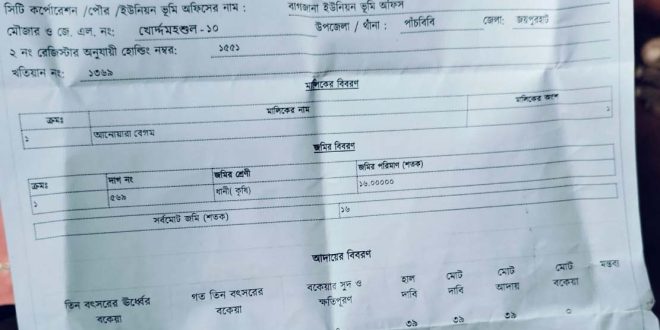 সিটি কর্পোরেশন /পৌর /ইউনিয়ন ভূমি অফিসের নাম : বাগজানা ইউনিয়ন ভূমি অফিস
মৌজার ও জে. এল. নং: খোর্দ্দমহশুল - ১০ উপজেলা / থানা : পাঁচবিবি জেলা: জয়পুরহাট
২ নং রেজিস্টার অনুযায়ী হোল্ডিং নম্বর: ১৫৫১
খতিয়ান নং: ১৩৬৯
মালিকের বিবরণ
ক্রমঃ মালিকের নাম মালিকের অংশ
১ আনোয়ারা বেগম ১
জমির বিবরণ
ক্রমঃ দাগ নং জমির শ্রেণী জমির পরিমাণ (শতক)
১ ৫৬৯ ধানী( কৃষি) ১৬.০০০০০
সর্বমোট জমি (শতক) ১৬
আদায়ের বিবরণ
তিন বৎসরের ঊর্ধ্বের বকেয়া গত তিন বৎসরের বকেয়া বকেয়ার সুদ ও ক্ষতিপূরণ হাল দাবি মোট দাবি মোট আদায় মোট বকেয়া মন্তব্য
৩৯ ৩৯ ৩৯ ০